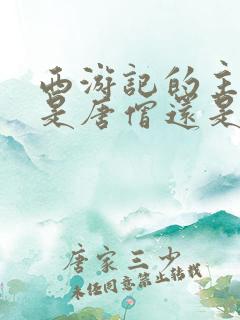 西游记的主
是唐僧还是
唐家三少
未经同意禁止转载